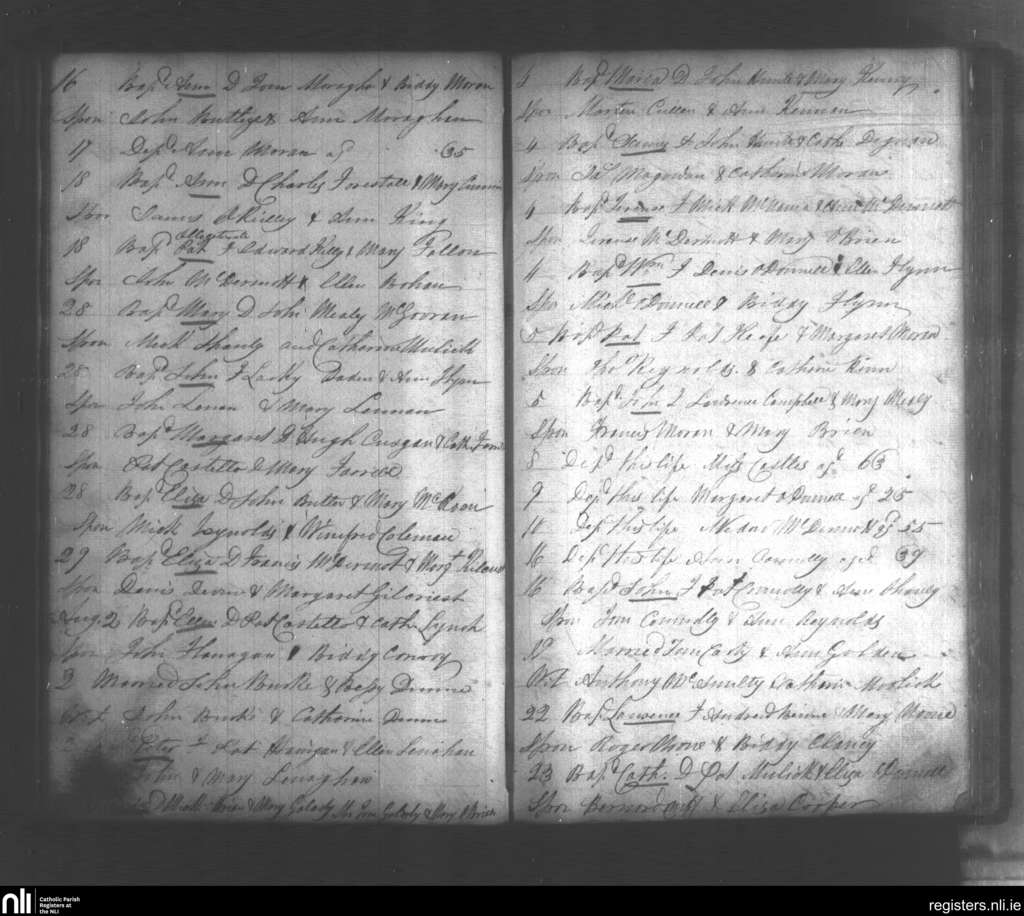 16 Bapd Ann D Tom Moraghn & Biddy Moran
Spon John Butlye & Ann Moraghen
17 Depd Ann Moran ag 35
18 Bapd Ann D Charly Forestall & Mary
Spon James & Ann King
18 Bapd Pat F Edward Kelly & Mary Fallon
Spon John McDermott & Ellen Bohan
28 Bapd Mary D John Mealy McGovran
Spon Mick Shanly and Catharine Mulick
28 Bapd John F Lacky & Ann Flyn
Spon John Lenan & Mary Lennan
28 Bapd Margaret D Hugh & Cath
Spon Pat Costello & Mary Farrell
28 Bapd Eliza D John Butler & Mary McKeon
Spon Mick Reynolds & Winefred Coleman
29 Bapd Eliza D Francis McDermot & Margt
Spon Denis & Margaret Gilcriest
Aug. 2 Bapd Ellen D Pat Costello & Cath. Lynch
Spon John Flanagan & Biddy Conroy
3 Married John Burke & Bessy Dunne
Wit John Burke & Catharine Dunne
Peter F Pat Hanigan & Ellen Lenahan
John & Mary Lenaghan
Mick Brien & Mary Golady & Mary O Brien
4 Bapd Maria D John & Mary Kenny
Spon Martin Cullen & Ann Keenan
4 Bapd F John & Cath. Degnan
Spon Jas Magowan & Catharine Moran
4 Bapd Terence F Mick McNama & Ann McDermott
Spon Terence McDermott & Mary O Brien
4 Bapd Wm F Denis O Donnell & Ellen Flynn
Spon Michl O Donnell & Biddy Flynn
5 Bapd Pat F Pat Keefe & Margaret Moran
Spon Thos Reynolds. & Cathrine Kinn
5 Bapd John F Lawrence Campbell & Mary Mealy
Spon Francis Moran & Mary Brien
8 Depd this life Miss Castles agd 63
9 Depd this life Margaret O Donnell agd 25
11 Depd this life McDermott agd 55
16 Depd this life Ann Connolly aged 39
16 Bapd John F Pat Connolly & Ann Shanly
Spon Tom Connolly & Ann Reynolds
17 Married Tom Casty & Ann Golden
Wit Anthony McAnulty Catharin Mulick
22 Bapd Lawrence F Andrew Beirne & Mary Moone
Spon Roger Moone & Biddy Clancy
23 Bapd Cath. D Pat Mulick & Eliza O Donnell
Spon Bernard Cuff & Eliza Cooper
nli
Catholic Parish
Registers at
the NLI
registers.nli.ie